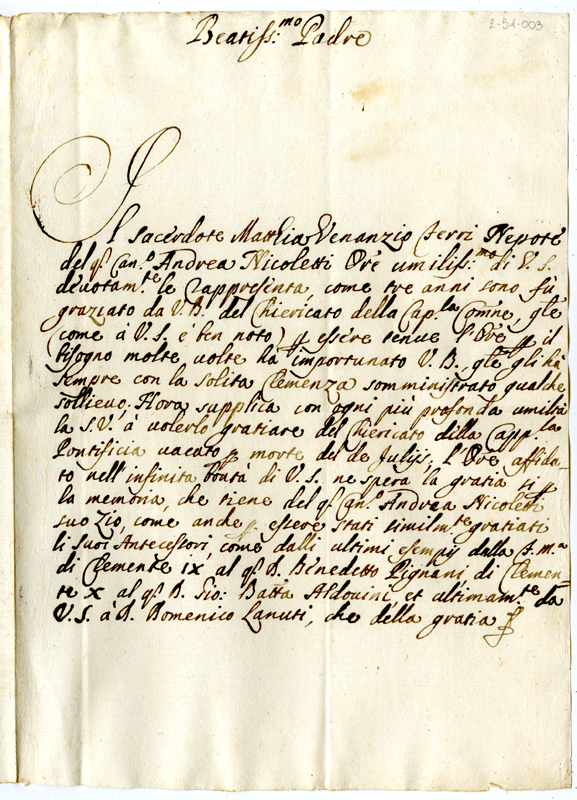 2-51-003
Beatiss:mo Padre
Il Sacerdote Matthia Venanzio Ferri Nepote
del q. Can.o Andrea Nicoletti Ore umiliss:mo di V. S.
devotam.te le rappresenta, come tre anni sono fù
graziato da V. B. del Chiericato della Cap.la Comne, gle
(come à V. S. è ben noto) p essere tenue l'Ore p il
bisogno molte volte ha importunato V. B., gle gli hà
sempre con la solita Clemenza somministrato qualche
sollievo; Hora supplica con ogni più profonda umiltà
la S.V. à volerlo gratiare del Chiericato della Capp.la
Pontificia vacato p morte del de Julijs; l'Ore affida-
to nell'infinita bontà di V. S. ne spera la gratia sì p
la memoria, che tiene del q. Can.o Andrea Nicoletti
suo Zio, come anche p. essere stati similm.te gratiati
li suoi Antecessori, come dalli ultimi esempij della f. m.a
di Clemente IX al q. D. Benedetto Pignani di Clemen-
te X al q. D. Gio: Batta Aldovini, et ultimam.te da
V. S. à D. Domenico Lanuti, che della gratia p